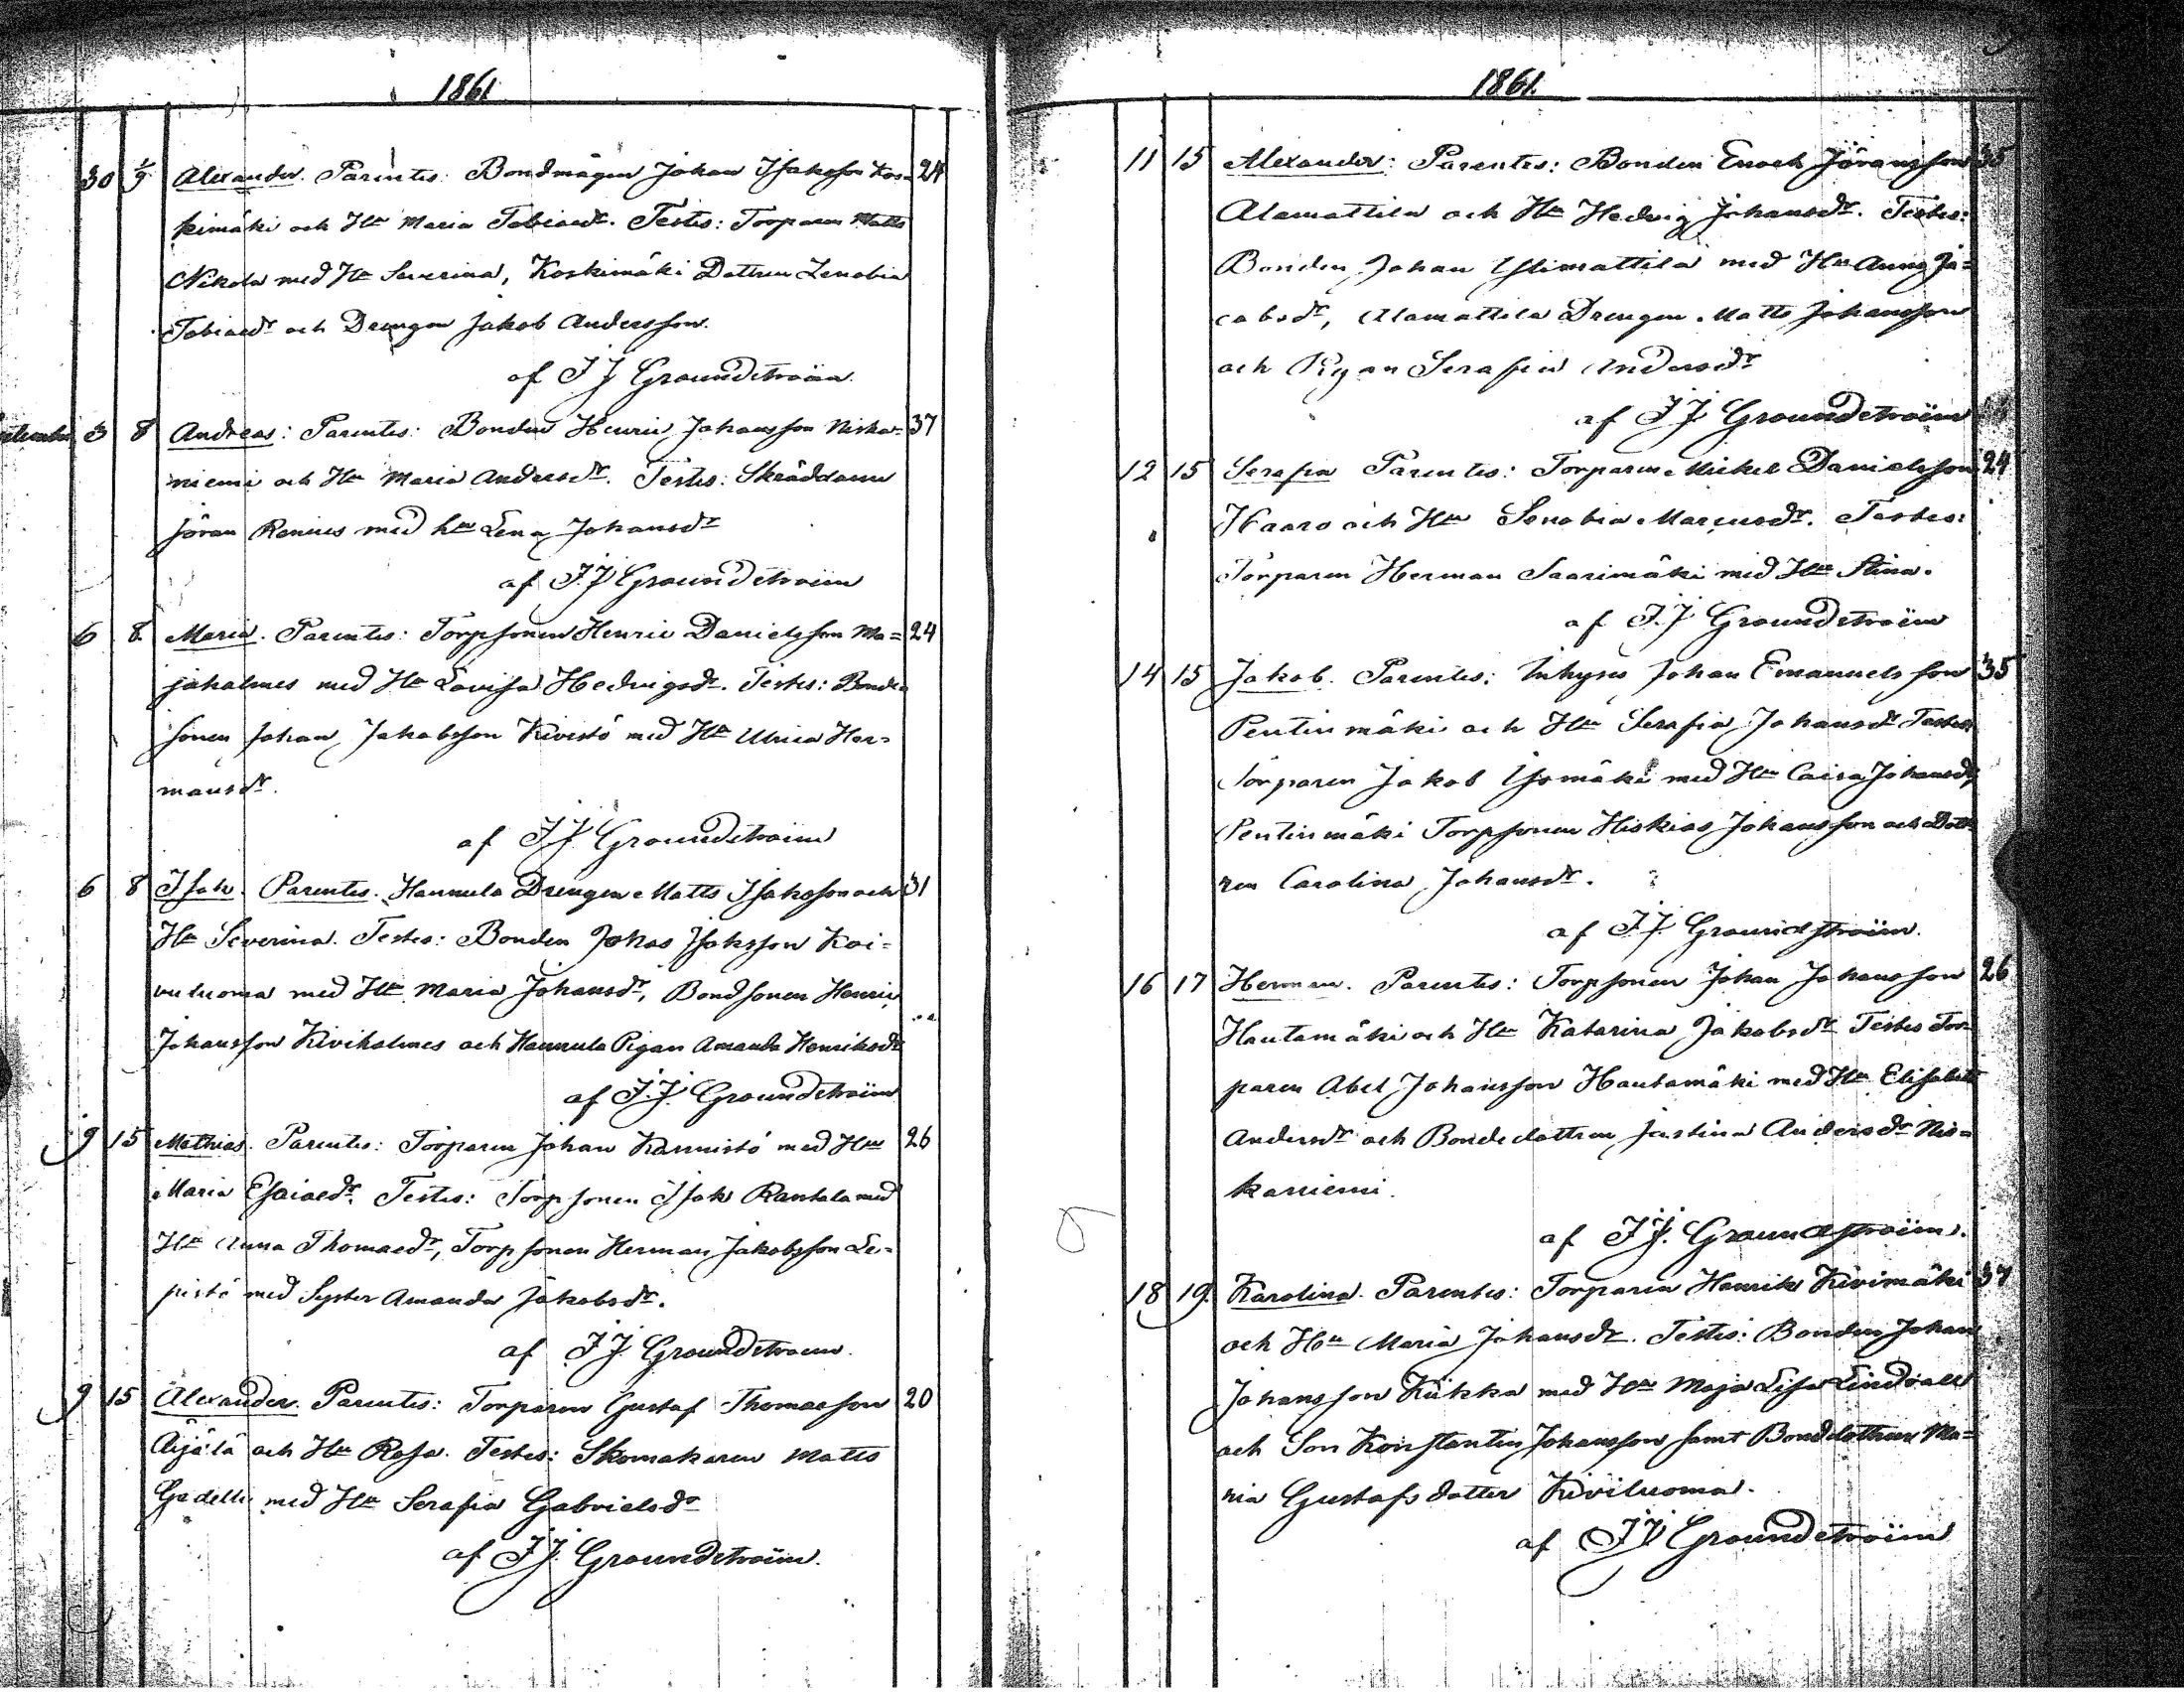 1861
30 1/9 Alexander. Parentes: Bondmågen Johan Isaksson Kos= 24
kimäki och Hu Maria Tobiaedr. Testes: Torparen Matts
Nikola med Hu Severina, Koskimäki Dottren Zenobia
Tobiaedr och Drengen Jakob Andersson.
af J J Groundstroëm
3 8 Andreas: Parentes: Bonden Henric Johansson Niska= 37
niemi och Hu Maria Andersdr. Testes: Skräddaren
Jöran Renius med hu Lena Johansdr
af J. J Groundstroëm
6 8 Maria. Parentes: Torpsonen Henric Danielsson Ma= 24
jaholmes med Hu Lovisa Hedvigsdr. Testes: Bonde
sonen Johan Jakobsson Kivistö med Hu Ulrica Her=
mansdr.
af J J Groundstroëm
6 8 Isak. Parentes. Hannula Drengen Matts Isaksson och 31
Hu Severina. Testes: Bonden Johas Isaksson Koi=
vuluoma med Hu Maria Johansdr, Bondsonen Henric
Johansson Kiviholmes och Hannula Pigan Amanda Henriksdr
af J. J. Groundstroëm
9 15 Mathias. Parentes: Torparen Johan Kannistö med Hu 26
Maria Esaiaedr. Testes: Torpsonen Isak Rantala med
Hu Anna Thomaedr, Torpsonen Herman Jakobsson Le=
pistö med Syster Amanda Jakobsdr.
af J J Groundstroem.
9 15 Alexander. Parentes: Torparen Gustaf Thomasson 20
Äijälä och Hu Rosa. Testes: Skomakaren Matts
med Hu Serafia Gabrielsdr
af J J. Groundstroëm.
1861.
11 15 Alexander: Parentes: Bonden Enoch Jöransson 35
Alamattila och Hu Hedvig Johansdr. Testes:
Bonden Johan Ylimattila med Hu Anna Ja=
cobsdr, Alamattila Drengen Matts Johansson
och Pigan Serafia Andersdr
af J J Groundstroëm
12 15 Serafia Parentes: Torparen Mickel Danielsson 24
Haaro och Hu Senobia Marcusdr. Testes:
Torparen Herman Saarimäki med Hu Stina.
af J. J Groundstroëm
14 15 Jakob. Parentes: Inhyses Johan Emanuelsson 35
Pentinmäki och Hu Serafia Johansdr Testes:
Torparen Jakob Ysomäki med Hu Caisa Johansdr
Pentinmäki Torpsonen Hiskias Johansson och Dott=
ren Carolina Johansdr.
af J J. Groundstroëm.
16 17 Herman. Parentes: Torpsonen Johan Johansson 26
Hautamäki och Hu Katarina Jakobsdr Testes Tor=
paren Abel Johansson Hautamäki med Hu Elisabeth
Andersdr och Bondedottren Justina Andersdr Nis=
kaniemi.
af J J. Groundstroëm.
18 19. Karolina. Parentes: Torparen Henrik Kivimäki 37
och Hu Maria Johansdr. Testes: Bonden Johan
Johansson Kukka med Hu Maja Lisa Lindvall
och Son Konstantin Johansson samt Bonddottren Ma=
ria Gustafsdotter Kiviluoma.
af J J Groundstroëm